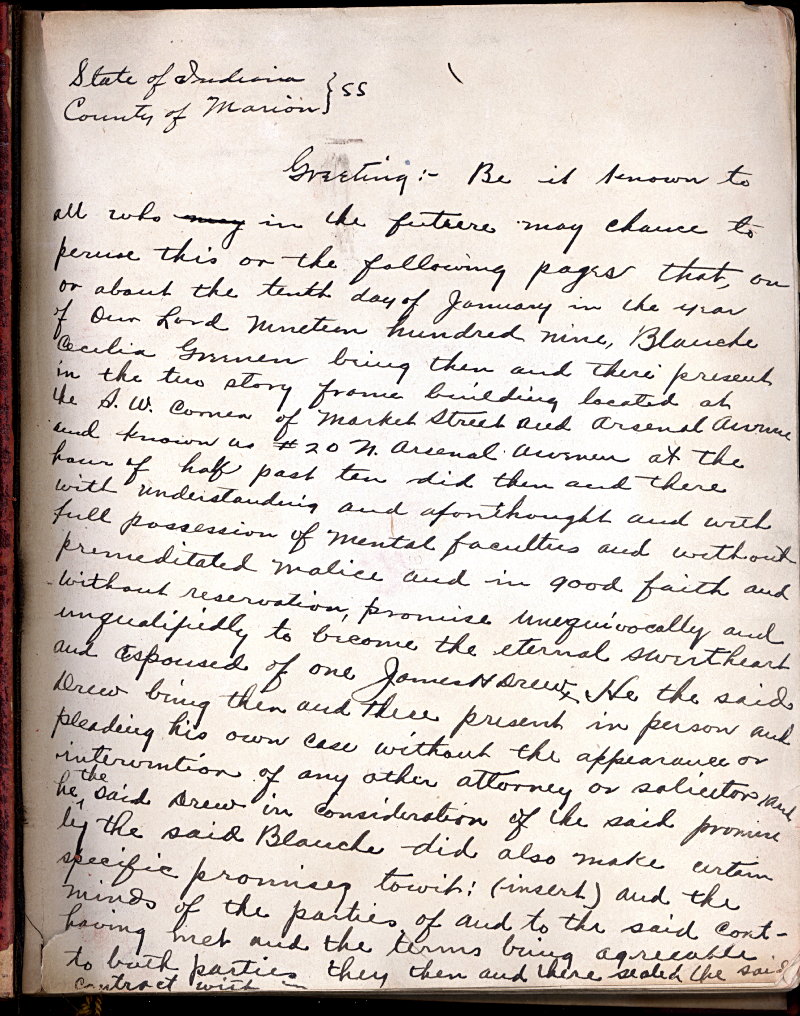 State of Indiana
County of Marion } SS
Greeting:- Be it known to
all who may in the future may chance to
peruse this or the following pages that, on
or about the tenth day of January in the year
of Our Lord Nineteen hundred nine, Blanche
Cecilia being then and there present
in the two story frame building located at
the S. W. Corner of Market Street and Arsenal Avenue
and known as #20 N. Arsenal Avenue at the
hour of half past ten did then and there
with understanding and aforthought and with
full possession of mental faculties and without
premeditated malice and in good faith and
without reservation, promise unequivocally and
unqualifiedly to become the eternal sweetheart
and espoused of one James H Drew, He the said
Drew being then and there present in person and
pleading his own case without the appearance or
intervention of any other attorney or solicitor and
he the said Drew in consideration of the said promise
by the said Blanche did also make certain
specific promises towit: (insert) and the
minds of the parties of and to the said cont-
having met and the terms being agreeable
to both parties they then and there sealed the said
contract with